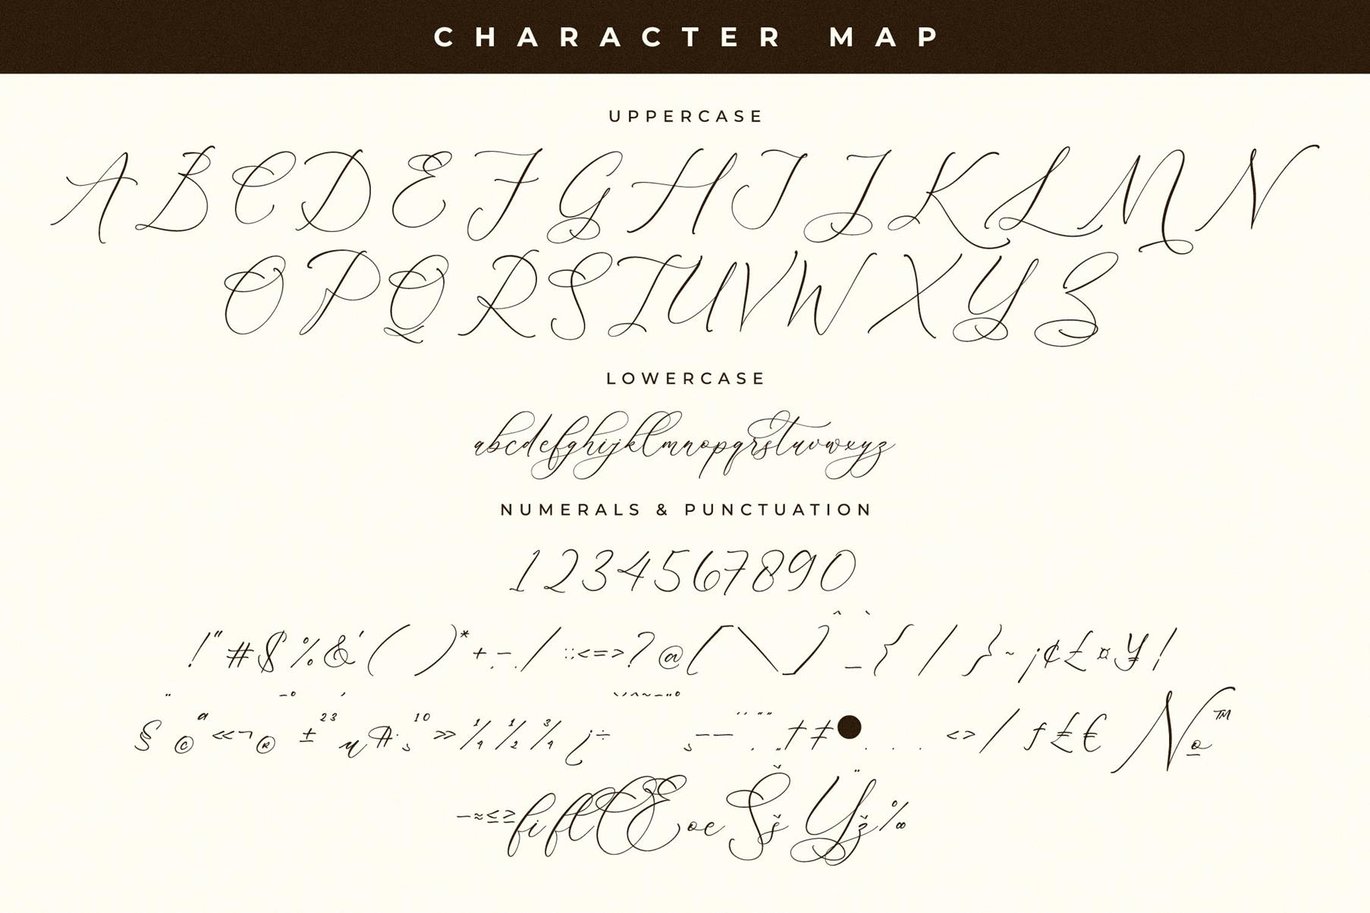 CHARACTER MAP
UPPERCASE
A B C D E F G H I J K L M N
O P Q R S T U V W X Y Z
LOWERCASE
abcdefghijklmnopqrstuvwxyz
NUMERALS & PUNCTUATION
1234567890
!"#$%&'()*+,-./:;<=>?@[\]^_`{|}~¡¢£¤¥¦
§¨©ª«¬®¯°±²³´µ¶·¸¹º»¼½¾¿÷ˆˇ˘˙˚˛˜˝–—‘’‚“”„†‡•…‹›⁄ƒ₤€№™
−≈≤≥fiflŒœŠšŸž‰